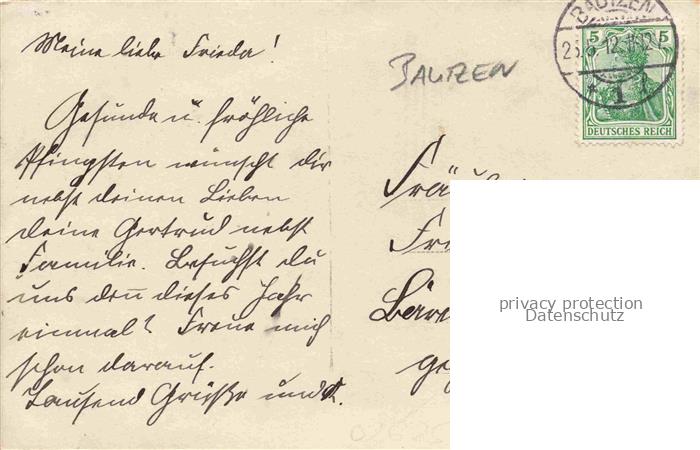 Meine liebe Frieda!
Gesunde u. fröhliche
Pfingsten wünscht dir
nebst deinen Lieben
deine Gertrud nebst
Familie. Besuchst du
uns denn dieses Jahr
einmal? Freue mich
schon darauf.
Tausend Grüße und
BAUTZEN
BAUTZEN
5 5
12
1
DEUTSCHES REICH
Fräu
Fr
Bäre
privacy protection
Datenschutz